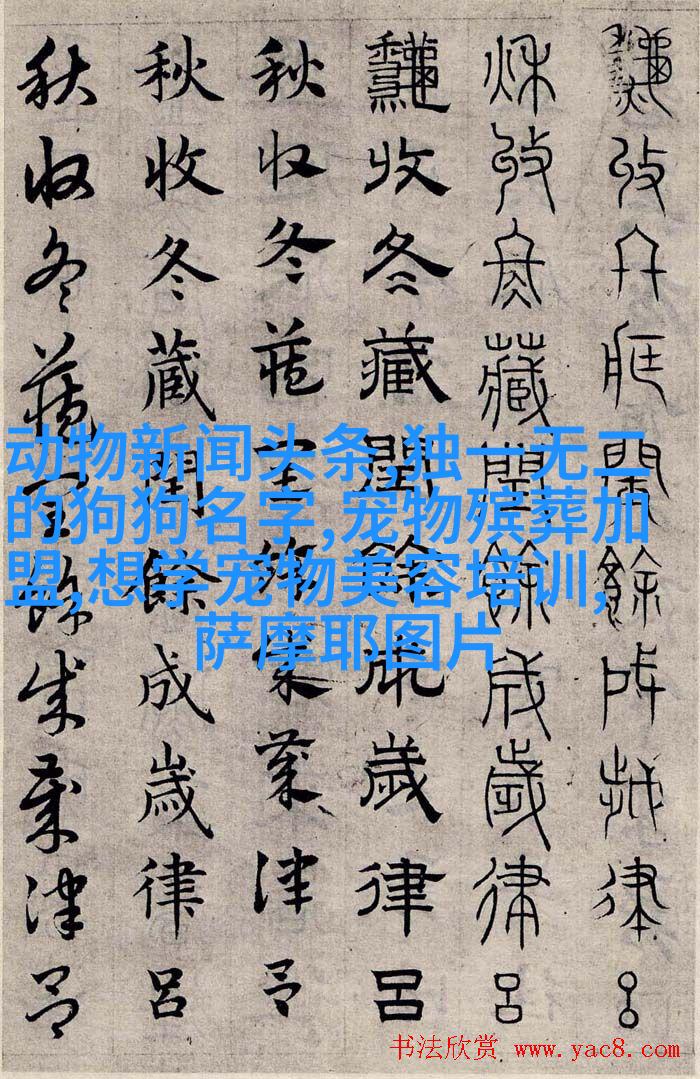 秋收冬藏閏餘成歲律呂
秋收冬藏閏餘成歲律呂
秋收冬藏閏餘成歲律呂
秋收冬藏閏餘成歲律呂
秋收冬藏閏餘成歲律呂
秋收冬藏閏餘成歲律呂
动物新闻头条,独一无二
的狗狗名字,宠物殡葬加
盟,想学宠物美容培训,
萨摩耶图片
书法欣赏 www.yac8.com